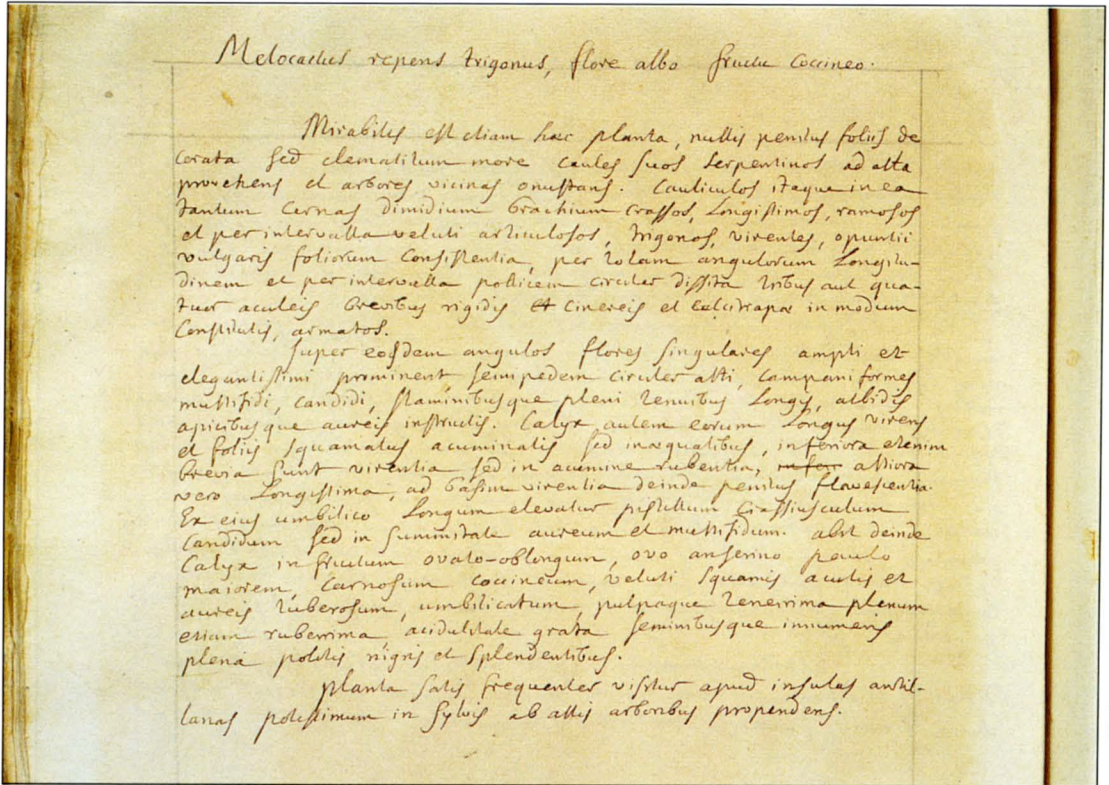 Melocactus repens trigonus, flore albo fructu coccineo.
Mirabilis est etiam haec planta, nullis penitus foliis de
corata sed clematitum more caules suos serpentinos ad alta
provehens et arbores vicinas onustans. Cauliculos itaque in ea
tantum cernas dimidium brachium crassos, longissimos, ramosos
et per intervalla veluti articulosos, trigonos, virentes, opuntii
vulgaris foliorum consistentia, per totam angulorum longitu-
dinem et per intervalla pollicem circiter dissita tribus aut qua-
tuor aculeis brevibus rigidis et cinereis et calcitrapae in modum
constitutis, armatos.
Super eosdem angulos flores singulares ampli et
elegantissimi prominent, semipedem circiter alti, campaniformes
multifidi, candidi, staminibusque pleni tenuibus longis, albidis
apicibusque aureis instructis. Calyx autem eorum longus virens
et foliis squamatus acuminatis sed inaequalibus, inferiora etenim
brevia sunt virentia sed in acumine rubentia, altiora
vero longissima, ad basim virentia deinde penitus flavescentia.
Ex eius umbilico longum elevatur pistillum crassiusculum
candidum sed in summitate aureum et multifidum. abit deinde
Calyx in fructum ovato-oblongum, ovo anserino paulo
maiorem, carnosum coccineum, veluti squamis acutis et
aureis tuberosum, umbilicatum, pulpaque tenerrima plenum
etiam ruberrima aciditate grata seminibusque innumeris
plena politis nigris et splendentibus.
planta satis frequenter visitur apud insulas antil-
lanas potissimum in sylvis ab altis arboribus propendens.